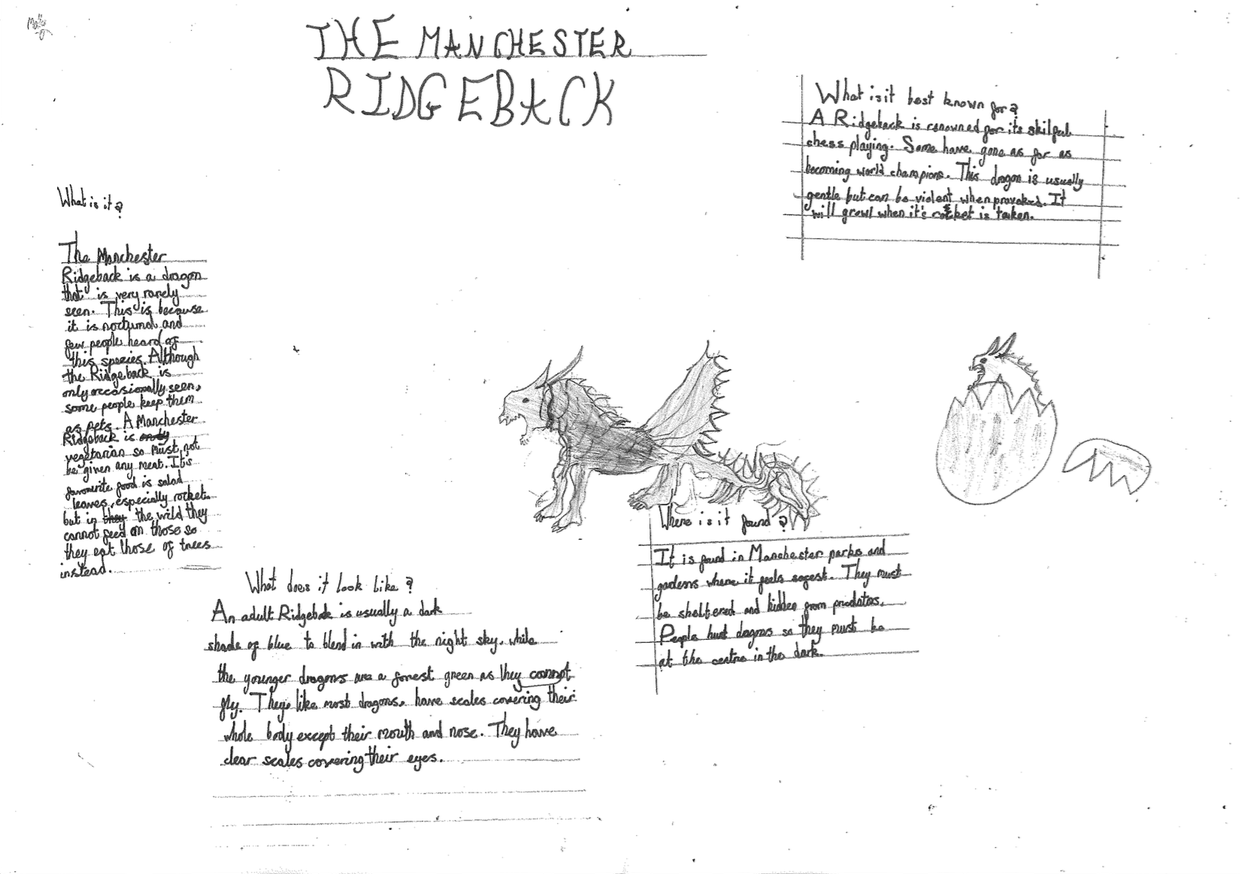 THE MANCHESTER
RIDGEBACK
What is it?
The Manchester
Ridgeback is a dragon
that is very rarely
seen. This is because
it is nocturnal and
few people heard of
this species. Although
the Ridgeback is
only occasionally seen,
some people keep them
as pets. A Manchester
Ridgeback is only
vegetarian so must not
be given any meat. It's
favourite food is salad
leaves, especially rocket
but in they the wild they
cannot feed on those so
they eat those of trees
instead.
What does it look like?
An adult Ridgeback is usually a dark
shade of blue to blend in with the night sky, while
the younger dragons are a forest green as they cannot
fly. They, like most dragons, have scales covering their
whole body except their mouth and nose. They have
clear scales covering their eyes.
What is it best known for?
A Ridgeback is renowned for its skilful
chess playing. Some have gone as far as
becoming world champions. This dragon is usually
gentle but can be violent when provoked. It
will growl when it's rocket is taken.
Where is it found?
It is found in Manchester parks and
gardens where it feels safest. They must
be sheltered and hidden from predators.
People hunt dragons so they must be
at the centre in the dark.